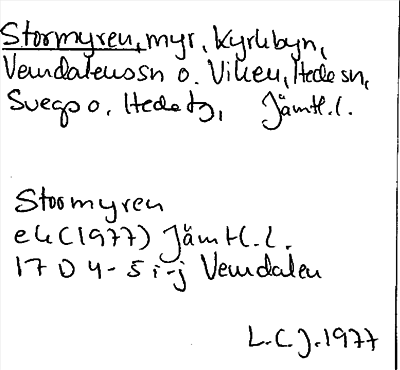 Stormyren, myr, Kyrkbyn,
Vemdalens sn o. Viken, Hede sn,
Svegs o. Hede tg, Jämtl. l.
Stormyren
ek (1977) Jämtl. l.
17 D 4-5 i-j Vemdalen
L.C.J. 1977